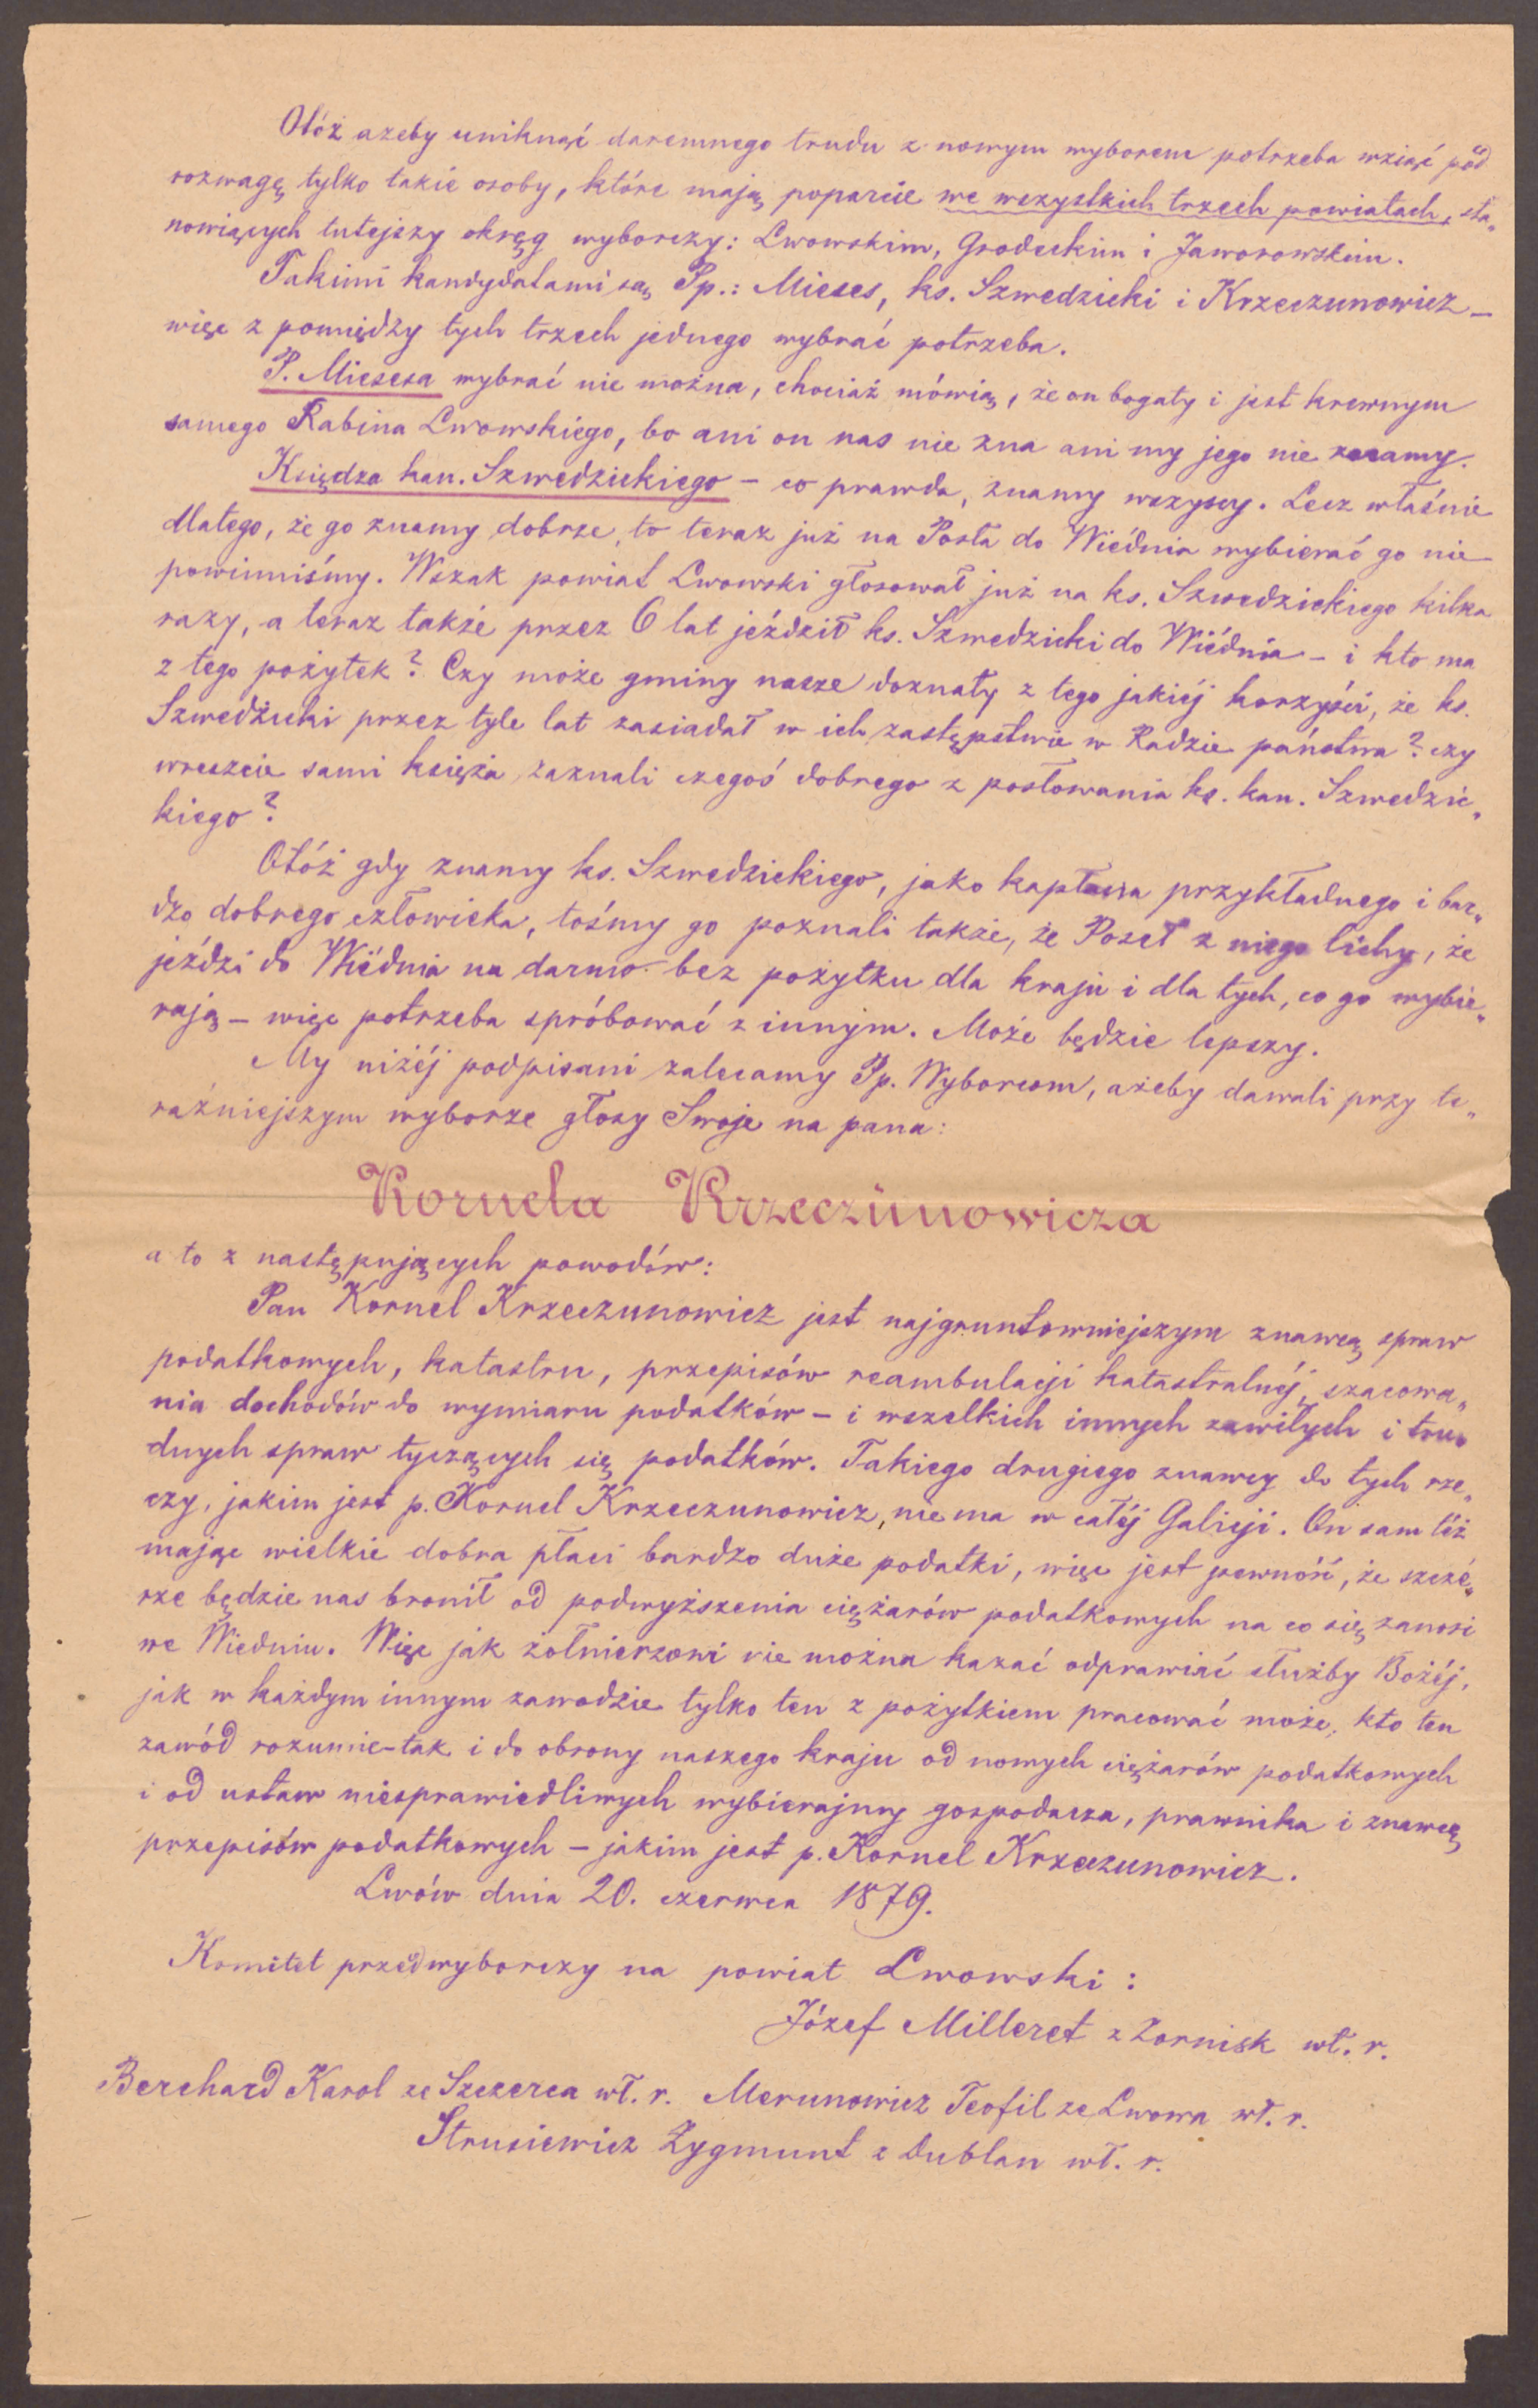 Otóż ażeby uniknąć daremnego trudu z nowym wyborem potrzeba wziąć pod
rozwagę tylko takie osoby, które mają poparcie we wszystkich trzech powiatach, sta„
nowiących tutejszy okręg wyborczy: Lwowskim, Grodeckim i Jaworowskim.
Takimi kandydatami są Pp.: Mieses, ks. Szwedzicki i Krzeczunowicz –
więc z pomiędzy tych trzech jednego wybrać potrzeba.
P. Miesesa wybrać nie można, chociaż mówią, że on bogaty i jest krewnym
samego Rabina Lwowskiego, bo ani on nas nie zna ani my jego nie znamy.
Księdza kan. Szwedzickiego – co prawda, znamy wszyscy. Lecz właśnie
dlatego, że go znamy dobrze, to teraz już na Posła do Wiédnia wybierać go nie
powinniśmy. Wszak powiat Lwowski głosował już na ks. Szwedzickiego kilka
razy, a teraz także przez 6 lat jeździł ks. Szwedzicki do Wiédnia – i kto ma
z tego pożytek? Czy może gminy nasze doznały z tego jakiéj korzyści, że ks.
Szwedzicki przez tyle lat zasiadał w ich zastępstwie w Radzie państwa? czy
wreszcie sami księża zaznali czegoś dobrego z posłowania ks. kan. Szwedzic„
kiego?
Otóż gdy znamy ks. Szwedzickiego, jako kapłana przykładnego i bar„
dzo dobrego człowieka, tośmy go poznali także, że Poseł z niego lichy, że
jeździ do Wiédnia na darmo bez pożytku dla kraju i dla tych, co go wybie„
rają – więc potrzeba spróbować z innym. Może będzie lepszy.
My niżéj podpisani zalecamy Pp. Wyborcom, ażeby dawali przy te„
raźniejszym wyborze głosy Swoje na pana:
Kornela Krzeczunowicza
a to z następujących powodów:
Pan Kornel Krzeczunowicz jest najgruntowniejszym znawcą spraw
podatkowych, katastru, przepisów reambulacji katastralnéj, szacowa„
nia dochodów do wymiaru podatków – i wszelkich innych zawiłych i tru„
dnych spraw tyczących się podatków. Takiego drugiego znawcy do tych rze„
czy, jakim jest p. Kornel Krzeczunowicz, nie ma w całéj Galicji. On sam téż
mając wielkie dobra płaci bardzo duże podatki, więc jest pewność, że szczé„
rze będzie nas bronił od podwyższenia ciężarów podatkowych na co się zanosi
we Wiedniu. Więc jak żołnierzowi nie można kazać odprawiać służby Bożéj,
jak w każdym innym zawodzie tylko ten z pożytkiem pracować może, kto ten
zawód rozumie – tak i do obrony naszego kraju od nowych ciężarów podatkowych
i od ustaw niesprawiedliwych wybierajmy gospodarza, prawnika i znawcę
przepisów podatkowych – jakim jest p. Kornel Krzeczunowicz.
Lwów dnia 20. czerwca 1879.
Komitet przedwyborczy na powiat Lwowski:
Józef Milleret z Zornisk wł. r.
Berchard Karol ze Szczerca wł. r. Merunowicz Teofil ze Lwowa wł. r.
Strusiewicz Zygmunt z Dublan wł. r.